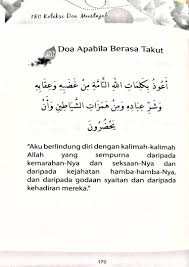 180 Koleksi Doa Mustajab
Doa Apabila Berasa Takut
أَعُوذُ بِكَلِمَاتِ اللهِ التَّامَّةِ مِنْ غَضَبِهِ وَعِقَابِهِ
وَشَرِّ عِبَادِهِ وَمِنْ هَمَزَاتِ الشَّيَاطِينِ وَأَنْ
يَحْضُرُونَ
"Aku berlindung diri dengan kalimah-kalimah
Allah yang sempurna daripada
kemarahan-Nya dan seksaan-Nya dan
daripada kejahatan hamba-hamba-Nya,
dan daripada godaan syaitan dan daripada
kehadiran mereka."
170